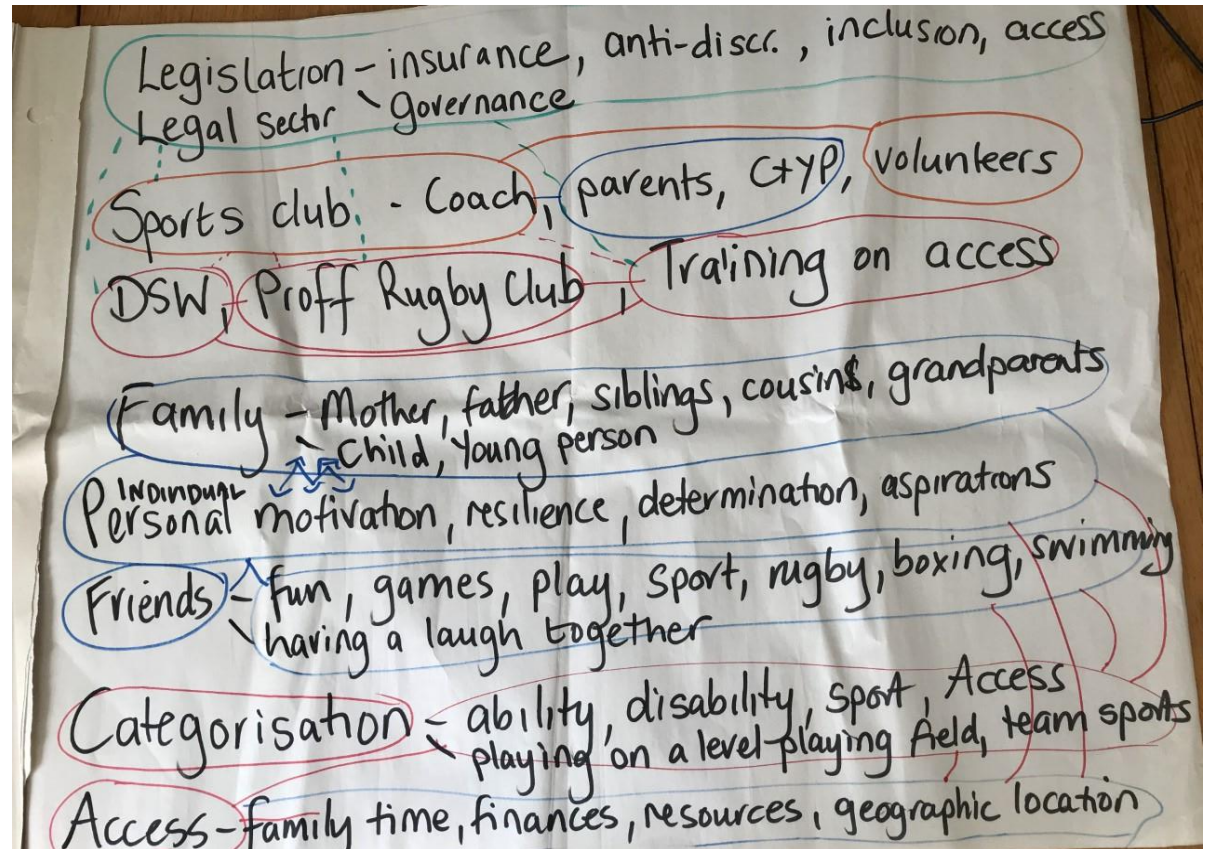 Legislation - insurance, anti-discr., inclusion, access
Legal sector \ governance
Sports club. - Coach, parents, C+YP, volunteers
DSW, Proff Rugby Club, Training on access
Family - Mother, father, siblings, cousins, grandparents
\ Child, Young person
INDIVIDUAL
Personal motivation, resilience, determination, aspirations
Friends - fun, games, play, sport, rugby, boxing, swimming
\ having a laugh together
Categorisation - ability, disability, sport, Access
\ playing on a level playing field, team sports
Access - family time, finances, resources, geographic location